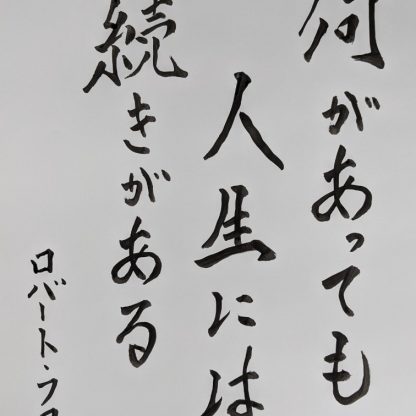 何があっても
人生には
続きがある
ロバート・フロ